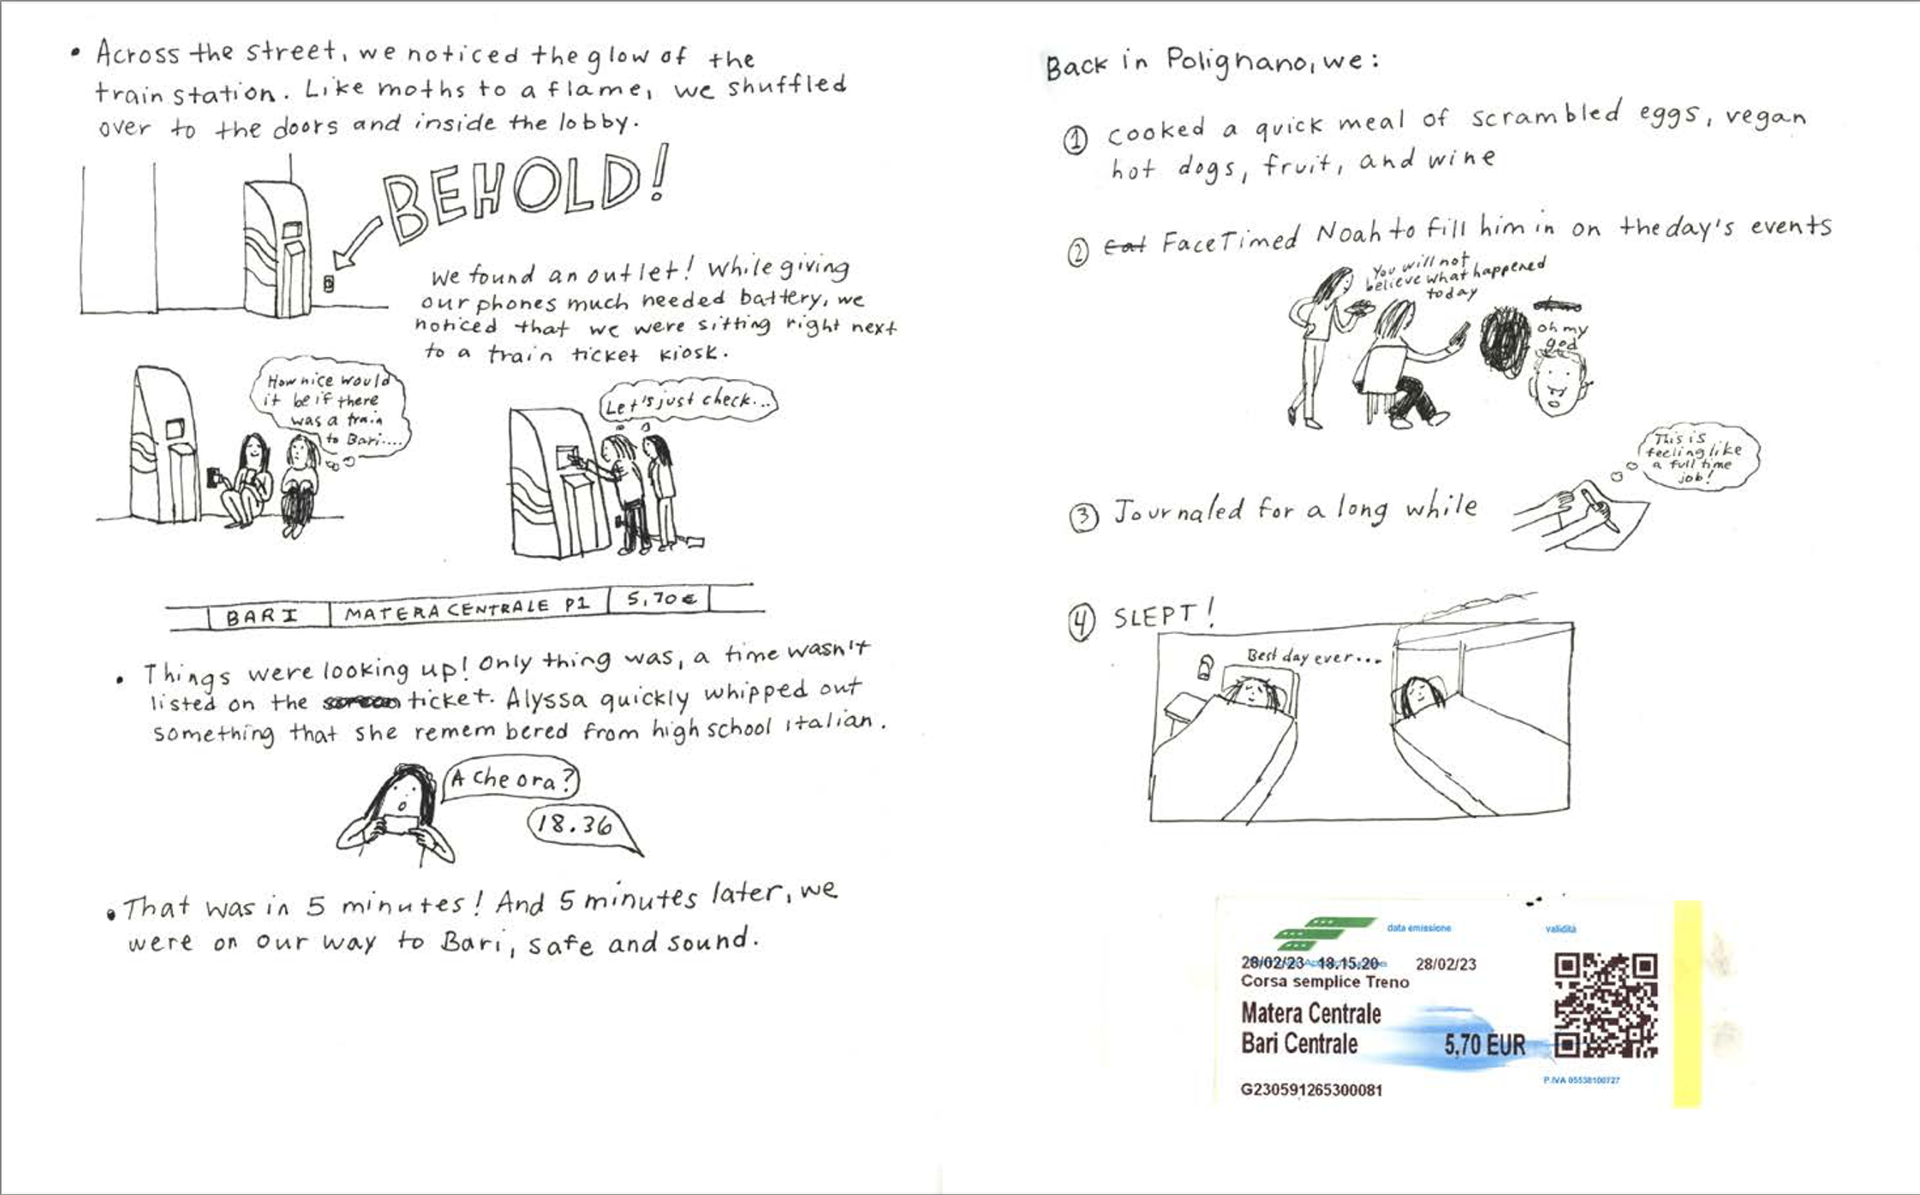 • Across the street, we noticed the glow of the
train station. Like moths to a flame, we shuffled
over to the doors and inside the lobby.
BEHOLD!
We found an outlet! While giving
our phones much needed battery, we
noticed that we were sitting right next
to a train ticket kiosk.
How nice would
it be if there
was a train
to Bari....
Let's just check...
BARI MATERA CENTRALE P1 5,70€
• Things were looking up! Only thing was, a time wasn't
listed on the ticket. Alyssa quickly whipped out
something that she remembered from high school italian.
A che ora?
18.36
• That was in 5 minutes! And 5 minutes later, we
were on our way to Bari, safe and sound.
Back in Polignano, we:
① cooked a quick meal of scrambled eggs, vegan
hot dogs, fruit, and wine
② Eat FaceTimed Noah to fill him in on the day's events
You will not
believe what happened
today
oh no
oh my
god
③ Journaled for a long while
This is
feeling like
a full time
job!
④ SLEPT!
Best day ever...
data emissione validità
28/02/23 18.15.20 28/02/23
Corsa semplice Treno
Matera Centrale
Bari Centrale 5,70 EUR
P.IVA 05538100727
G230591265300081